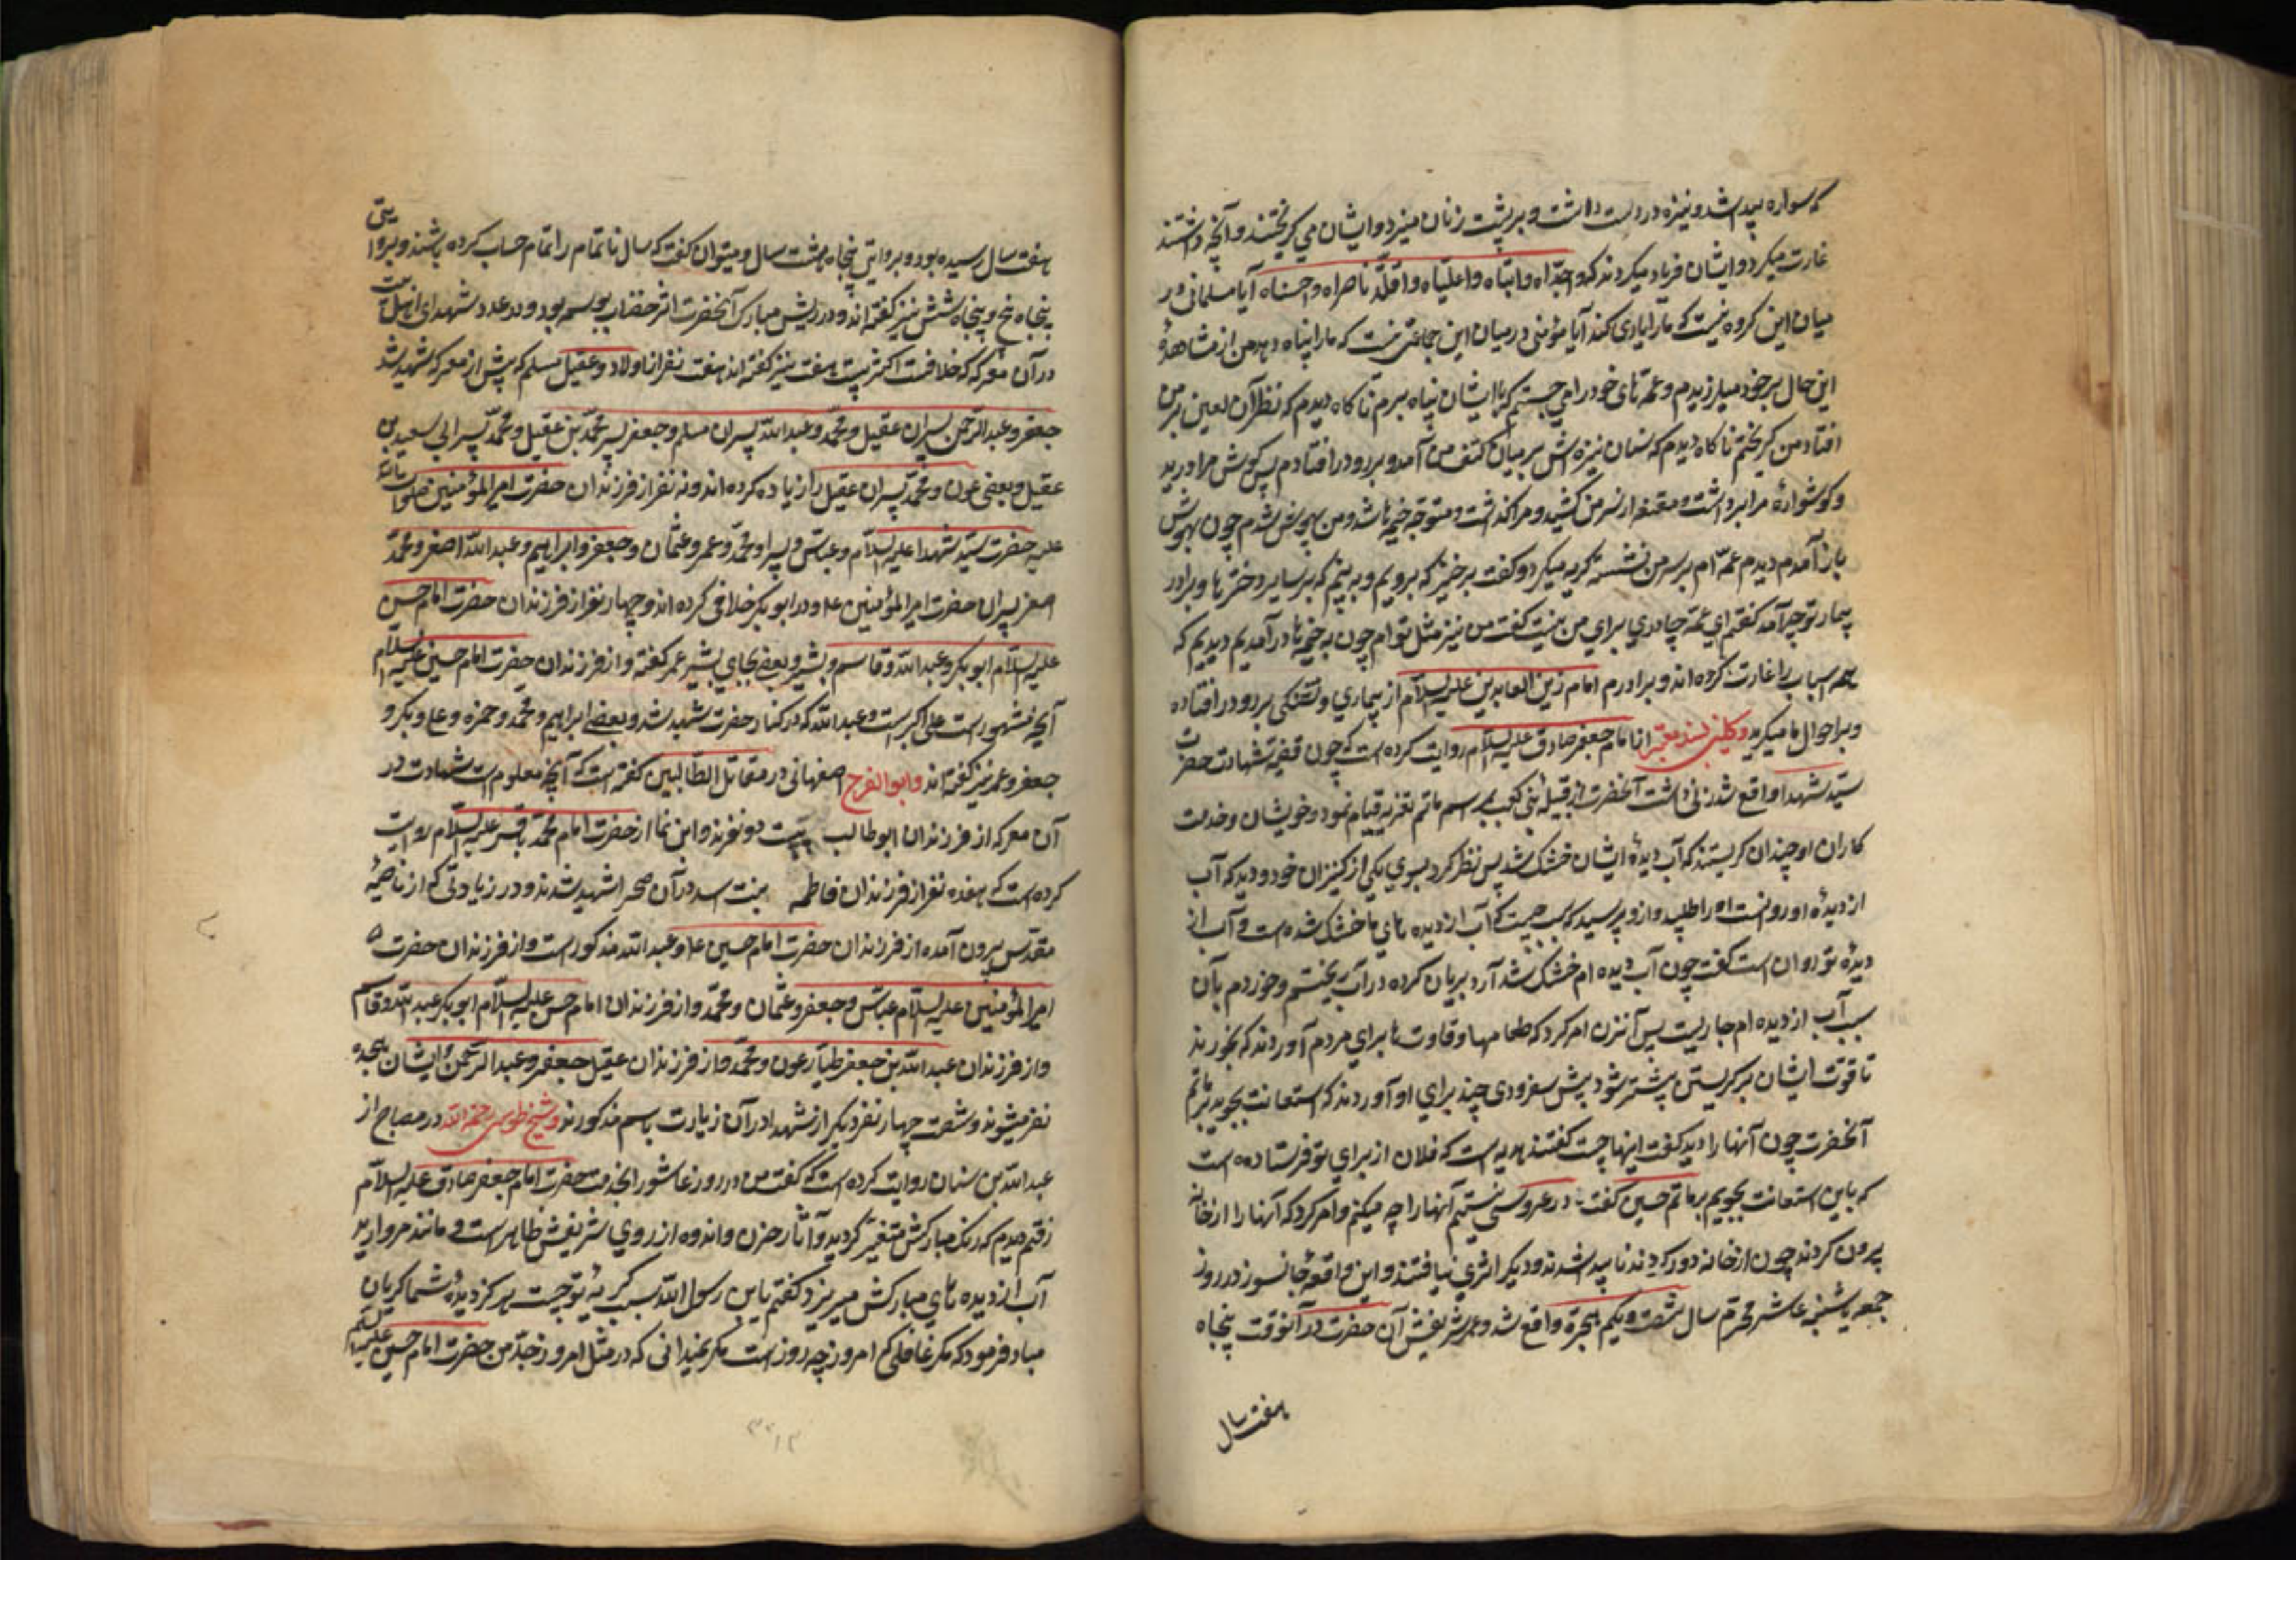 که سواره پیدا شد و نیزه در دست داشت و بر پشت زنان میزد و ایشان می کریختند و آنچه داشتند
غارت میکرد و ایشان فریاد میکردند که واجداه وا ابتاه وا علیاه وا قلة ناصراه وا حسناه آیا مسلمانی در
میان این کروه نیست که ما را یاری کند آیا مؤمنی در میان این جماعت نیست که ما را پناه دهد من از مشاهدهٔ
این حال بر خود میلرزیدم و عمه های خود را می جستم که با ایشان پناه برم ناکاه دیدم که نظر آن لعین بر من
افتاد من کریختم ناکاه دیدم که سنان نیزه اش بر میان کتف من آمد و بر رو در افتادم پس کوش مرا درید
و کوشوارهٔ مرا برداشت و مقنعه از سر من کشید و مرا کذاشت و متوجه خیمه ها شد و من بیهوش شدم چون بهوش
باز آمدم دیدم عمه ام بر سر من نشسته کریه میکرد و کفت برخیز که برویم و به بینم که بر سایر دخترها و برادر
بیمار تو چه آمد کفتم ای عمه چادری برای من نیست کفت من نیز مثل توام چون به خیمه ها در آمدیم دیدیم که
همه اسباب را غارت کرده اند و برادرم امام زین العابدین علیه السلام از بیماری و تشنکی بر رو در افتاده
و بر احوال ما میکرید و کلینی بسند معتبر از امام جعفر صادق علیه السلام روایت کرده است که چون قضیه شهادت حضرت
سید شهدا واقع شد زنی داشت آنحضرت از قبیله بنی کلب بمراسم ماتم تعزیه قیام نمود و خویشان و خدمت
کاران او چندان کریستند که آب دیدهٔ ایشان خشک شد پس نظر کرد بسوی یکی از کنیزان خود و دید که آب
از دیدهٔ او روانست او را طلبید و از و پرسید که سبب چیست که آب از دیده های ما خشک شده است و آب از
دیدهٔ تو روان است کفت چون آب دیده ام خشک شد آرد بریان کرده در آب ریختم و خوردم بآن
سبب آب از دیده ام جاریست پس آنزن امر کرد که طعامها و قاوت ها برای مردم آوردند که بخورند
تا قوت ایشان بر کریستن بیشتر شود پیش سفرودی چند برای او آوردند که استعانت بجوید بر ماتم
آنحضرت چون آنها را دید کفت اینها چیست کفتند هدیه است که فلان از برای تو فرستاده است
که باین استعانت بجویم بر ماتم حسین کفت در عروسی نیستیم آنها را چه میکنم و امر کرد که آنها را از خانه
بیرون کردند چون از خانه دور کردند ناپیدا شدند و دیکر اثری نیافتند و این واقعهٔ جانسوز در روز
جمعه یا شنبه عاشر محرم سال شصت و یکم هجرة واقع شد و عمر شریفش آن حضرت در آنوقت پنجاه
هفت سال
هفت سال رسیده بود و بروایتی پنجاه و هشت سال و میتوان کفت که سال ناتمام را تمام حساب کرده باشند و بروایتی
پنجاه پنج و پنجاه شش نیز کفته اند و در ریش مبارک آنحضرت اثر خضاب بوسمه بود و در عدد شهدای اهل بیت
در آن معرکه که خلافست اکثر بیست هفت نیز کفته اند هفت نفر از اولاد و عقیل مسلم که پیش از معرکه شهید شد
جعفر و عبد الرحمن پسران عقیل و محمد و عبد الله پسران مسلم و جعفر پسر محمد بن عقیل و محمد پسر ابی سعید بن
عقیل و بعضی عون و محمد پسران عقیل را زیاده کرده اند و نه نفر از فرزندان حضرت امیر المؤمنین صلوات الله
علیه حضرت سید شهدا علیه السلام و عباس و پسر او محمد و عمر و عثمان و جعفر و ابراهیم و عبد الله اصغر و محمد
اصغر پسران حضرت امیر المؤمنین ع و در ابو بکر خلافی کرده اند و چهار نفر از فرزندان حضرت امام حسن
علیه السلام ابو بکر و عبد الله و قاسم و بشیر و بعضی بجای بشیر عمر کفته و از فرزندان حضرت امام حسین علیه السلام
آنچه مشهور است علی اکبر است و عبد الله که در کنار حضرت شهید شد و بعضی ابراهیم و محمد و حمزه و علی و بکر و
جعفر و عمر نیز کفته اند و ابو الفرج اصفهانی در مقاتل الطالبین کفته است که آنچه معلوم است شهادت در
آن معرکه از فرزندان ابو طالب بیست دو نفرند و ابن نما از حضرت امام محمد باقر علیه السلام روایت
کرده است که هفده نفر از فرزندان فاطمه بنت اسد در آن صحرا شهید شدند و در زیارتی که از ناحیهٔ
مقدس بیرون آمده از فرزندان حضرت امام حسین ع و عبد الله مذکور است و از فرزندان حضرت
امیر المؤمنین علیه السلام عباس و جعفر و عثمان و محمد و از فرزندان امام حسن علیه السلام ابو بکر عبد الله و قاسم
و از فرزندان عبد الله بن جعفر طیار عون و محمد و از فرزندان عقیل جعفر و عبد الرحمن و ایشان هیجده
نفر میشوند و شصت چهار نفر دیکر از شهدا در آن زیارت باسم مذکورند و شیخ طوسی رحمه الله در مصباح از
عبد الله بن سنان روایت کرده است که کفت من در روز عاشورا بخدمت حضرت امام جعفر صادق علیه السلام
رفتم دیدم که رنک مبارکش متغیر کردیده و آثار حزن و اندوه از روی شریفش ظاهر است و مانند مروارید
آب از دیده های مبارکش میریزد کفتم یا بن رسول الله سبب کریهٔ تو چیست هرکز دیدهٔ شما کریان
مباد فرمود که مکر غافلی که امروز چه روز است مکر نمیدانی که در مثل امروز جد من حضرت امام حسین علیه السلام